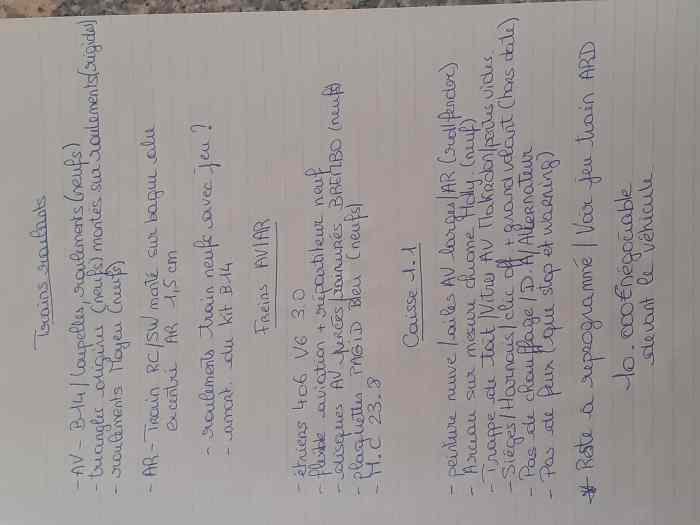 Trains roulants
- AV - B14 / Coupelles, roulements (neufs)
- triangle origine (neufs) montés sur roulements (rigides)
- roulements Moyeu (neufs)
- AR - Train RC/SW monté sur bague alu
excentré AR 1,5 cm
- roulements train neufs avec jeu ?
- amort. du kit B14
Freins AV/AR
- étriers 406 V6 3.0
- flexible aviation + répartiteur neuf
- disques AV percés/rainurés BREMBO (neufs)
- plaquettes PAGID Bleu (neufs)
- M.C 23.8
Caisse 1.1
- peinture neuve / ailes AV larges / AR (rad/fender)
- Arceau sur mesure chrome Moly. (neuf)
- Trappe de toit / Vitres AV Makrolon / portes vides.
- Sièges / Harnais / clic off + grand volant (hors date)
- Pas de chauffage / D.A / Alternateur
- Pas de feux (que stop et warning)
* Reste a reprogrammé / Voir jeu train ARD
10.000€ négociable
devant le véhicule